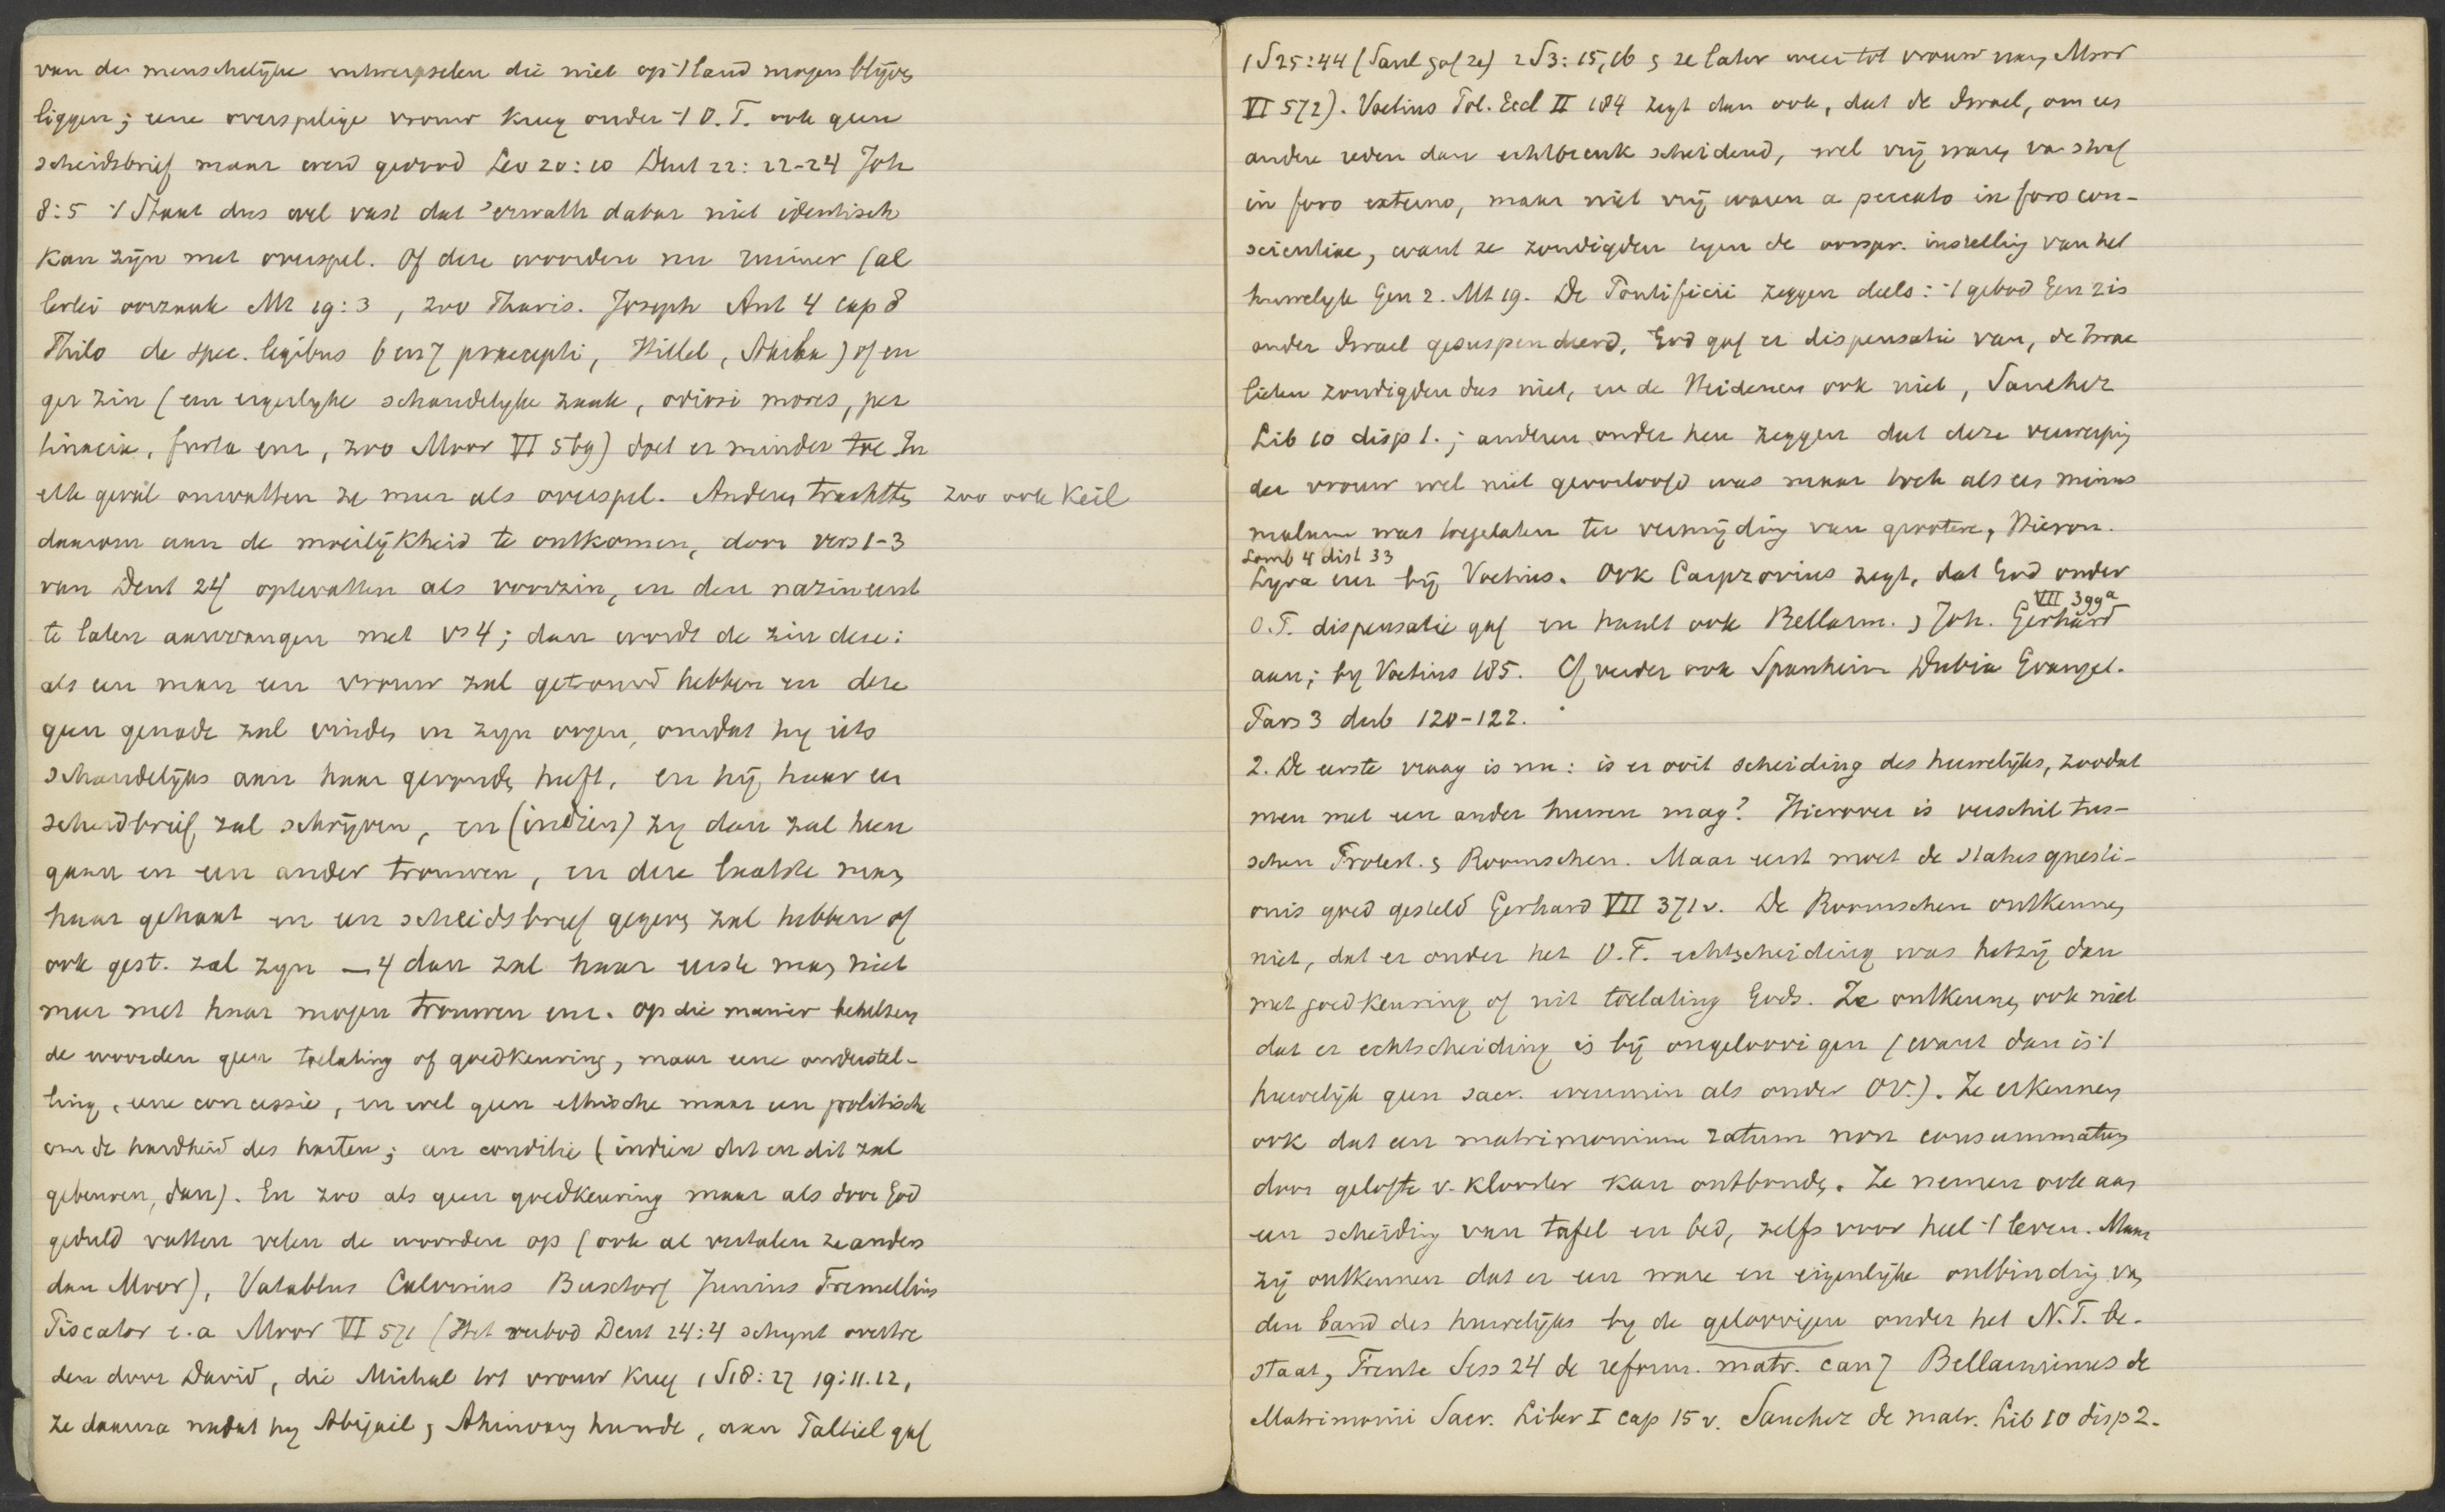 van de menschelijke uitwerpselen die niet op 't land mogen blijven
liggen; eene overspelige vrouw kreeg onder 't O.T. ook geen
scheidsbrief maar werd gedood Lev 20:10 Deut 22:22-24 Joh
8:5 't Staat dus wel vast dat 'erwath dabar niet identisch
kan zijn met overspel. Of deze woorden nu ruimer (al
lerlei oorzaak Mt 19:3, zoo Phariz. Joseph Ant 4 cap 8
Philo de spec. legibus 6 en 7 praecepti, Hillel, Akiba) of en
ger zin (een ergerlijke schandelijke zaak, odiosi mores, per
tinacia, furta enz, zoo Moor VI 569) doet er minder toe In
elk geval omvatten ze meer als overspel. Anderen trachtten zoo ook Keil
daarom aan de moeilijkheid te ontkomen, door vers 1-3
van Deut 24 optevatten als voorzin, en den nazin eerst
te laten aanvangen met vs 4; dan wordt de zin deze:
als een man een vrouw zal getrouwd hebben en deze
geen genade zal vinden in zijn oogen, omdat hij iets
schandelijks aan haar gevonden heeft, en hij haar een
scheidbrief zal schrijven, en (indien) zij dan zal heen
gaan en een ander trouwen, en deze laatste man
haar gehaat en een scheidsbrief gegeven zal hebben of
ook gest. zal zijn — 4 dan zal haar eerste man niet
meer met haar mogen trouwen enz. Op die manier behelzen
de woorden geen toelating of goedkeuring, maar eene onderstel-
ling, eene concessie, en wel geen ethische maar een politische
om de hardheid des harten; een conditie (indien dit en dit zal
gebeuren, dan). En zoo als geen goedkeuring maar als door God
geduld vatten velen de woorden op (ook al vertalen ze anders
dan Moor), Vatablus Calvinus Buxtorf Junius Tremellius
Piscator e.a Moor VI 571 (Het verbod Deut 24:4 schijnt overtre
den door David, die Michal tot vrouw kreeg 1 S 18:27 19:11.12,
ze daarna nadat hij Abigail & Ahinoam huwde, aan Paltiel gaf
1 S 25:44 (Saul gaf ze) 2 S 3:15,16 & ze later weer tot vrouw nam, Moor
VI 572). Voetius Pol. Eccl II 184 zegt dan ook, dat de Israel, om een
andere reden dan echtbreuk scheidend, wel vrij waren van straf
in foro externo, maar niet vrij waren a peccato in foro con-
scientiae, want ze zondigden tegen de oorspr. instelling van het
huwelijk Gen 2. Mt 19. De Pontificii zeggen deels: 't gebod Gen 2 is
onder Israel gesuspendeerd, God gaf er dispensatie van, de Israe
lieten zondigden dus niet, en de Heidenen ook niet, Sanchez
Lib 10 disp 1.; anderen onder hen zeggen dat deze verwerping
der vrouw wel niet geoorloofd was maar toch als een minus
malum was toegelaten ter vermijding van grootere, Hieron.
Lomb 4 dist 33
Lyra enz bij Voetius. Ook Carpzovius zegt, dat God onder
VII 399a
O.T. dispensatie gaf en haalt ook Bellarm. & Joh. Gerhard
aan; bij Voetius 185. Cf verder ook Spanheim Dubia Evangel.
Pars 3 dub 120-122.
2. De eerste vraag is nu: is er ooit scheiding des huwelijks, zoodat
men met een ander huwen mag? Hierover is verschil tus-
schen Protest. & Roomschen. Maar eerst moet de status quaesti-
onis goed gesteld Gerhard VII 371v. De Roomschen ontkennen
niet, dat er onder het O.T. echtscheiding was hetzij dan
met goedkeuring of uit toelating Gods. Ze ontkennen ook niet
dat er echtscheiding is bij ongeloovigen (want dan is 't
huwelijk geen sacr. evenmin als onder OV.). Ze erkennen
ook dat een matrimonium ratum non consummatum
door gelofte v. klooster kan ontbonden. Ze nemen ook aan
een scheiding van tafel en bed, zelfs voor heel 't leven. Maar
zij ontkennen dat er een ware en eigenlijke ontbinding van
den band des huwelijks bij de geloovigen onder het N.T. be-
staat, Trente Sess 24 de reform. matr. can 7 Bellarminus de
Matrimonii Sacr. Liber I cap 15 v. Sanchez de matr. Lib 10 disp 2.